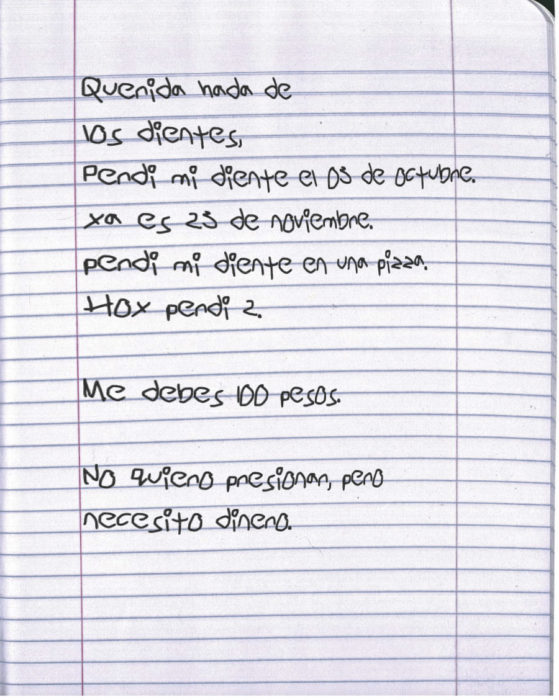 Querida hada de
los dientes,
Perdi mi diente el 03 de octubre.
ya es 23 de noviembre.
perdi mi diente en una pizza.
Hoy perdi 2.
Me debes 100 pesos.
No quiero presionar, pero
necesito dinero.